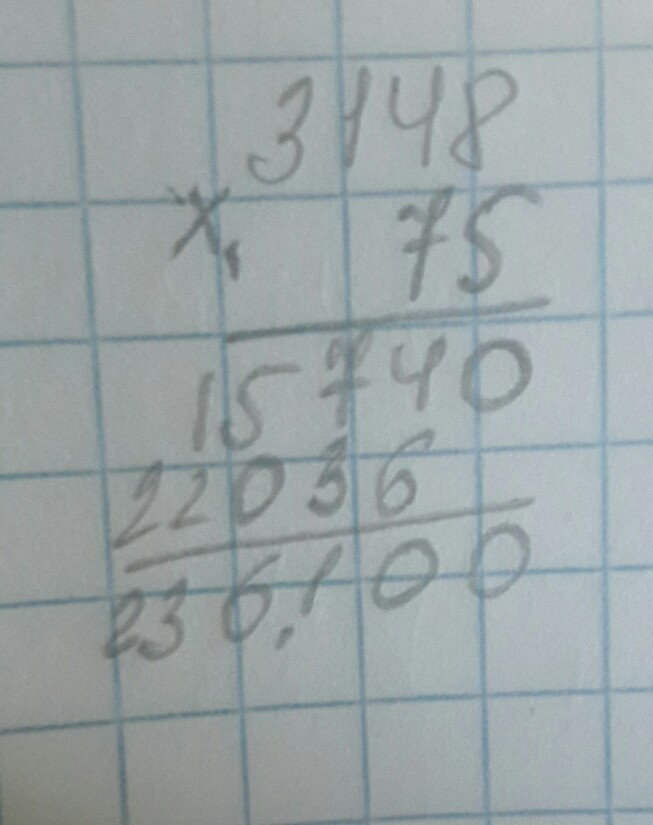 3148
x, 75
15740
22036
236,100